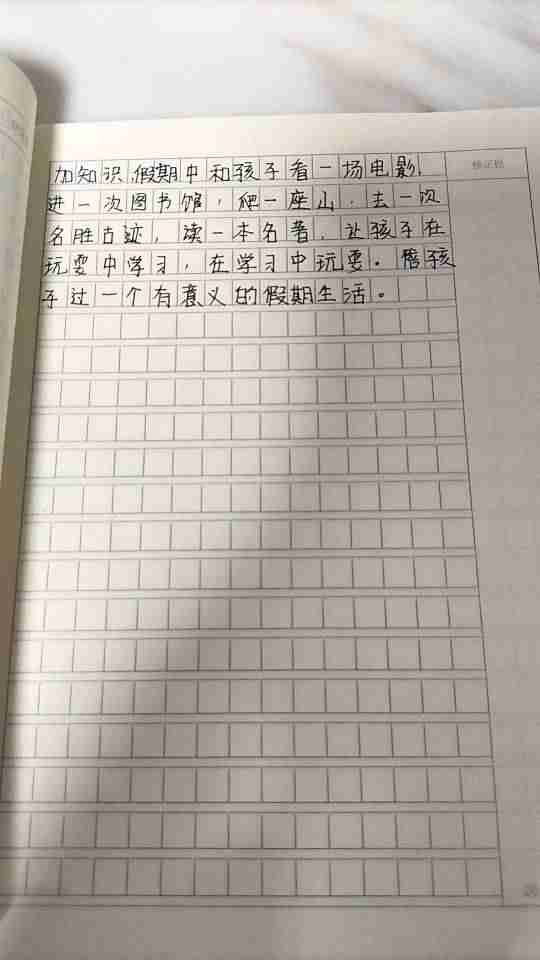 加知识,假期中和孩子看一场电影,
进一次图书馆,爬一座山,去一次
名胜古迹,读一本名著,让孩子在
玩耍中学习,在学习中玩耍。陪孩
子过一个有意义的假期生活。